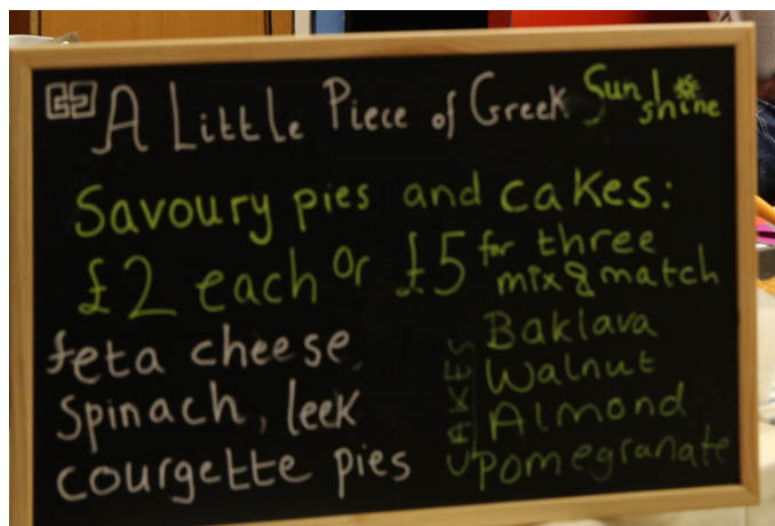 A Little Piece of Greek Sunshine
Savoury pies and cakes:
£2 each or £5 for three
mix & match
feta cheese,
Spinach, leek
courgette pies
CAKES
Baklava
Walnut
Almond
pomegranate